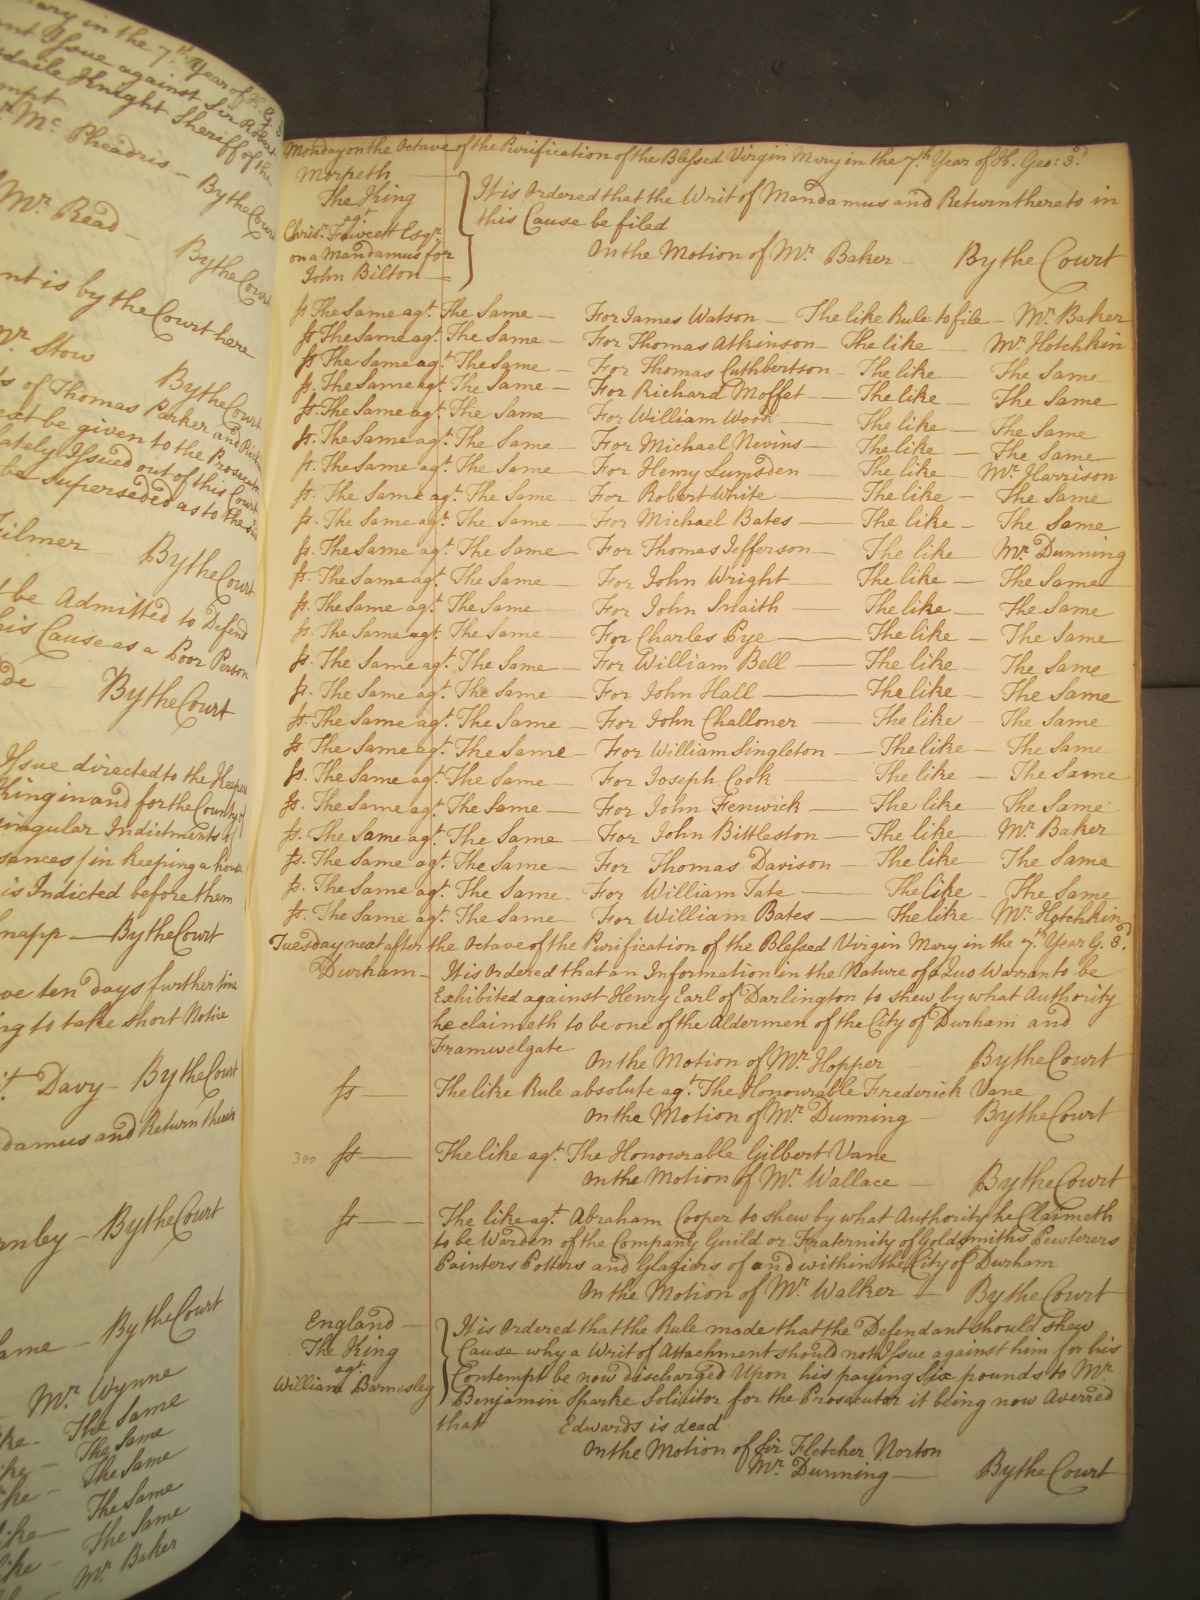 Mary in the 7th Year of K. G. 3
ent Issue against Sir Robert
sdaile Knight Sheriff of the
mpt
Mc. Pheadris — By the Court
Mr. Read — By the Court
nt is by the Court here
Mr. Stow By the Court
ts of Thomas Parker and
ext be given to the Prosecutor
lately Issued out of this Court
be superseded as to the sd
ilmer — By the Court
t be Admitted to Defend
his Cause as a Poor Person
de — By the Court
Issue directed to the Keeper
King in and for the County
singular Indictments
sances / in keeping a house
is Indicted before them
napp — By the Court
ve ten days further time
ng to take short Notice
t Davy — By the Court
damus and Return there
rnby — By the Court
ame — By the Court
Mr. Wynne
ke — The Same
ike — The Same
ke — The Same
like — The Same
like — The Same
Mr. Baker
Monday on the Octave of the Purification of the Blessed Virgin Mary in the 7.th Year of K. Geo: 3.d
Morpeth
The King
agt.
Chrisr. Fawcett Esqr.
on a Mandamus for
John Bilton —
It is Ordered that the Writ of Mandamus and Return thereto in
this Cause be filed
On the Motion of Mr. Baker — By the Court
ss The Same agt. The Same — For James Watson — The like Rule to file — Mr. Baker
ss The Same agt. The Same — For Thomas Atkinson — The like — Mr. Hotchkin
ss The Same agt. The Same — For Thomas Cuthbertson — The like — The Same
ss. The Same agt. The Same — For Richard Moffet — The like — The Same
ss. The Same agt. The Same — For William Wood — The like — The Same
ss. The Same agt. The Same — For Michael Nevins — The like — The Same
ss. The Same agt. The Same — For Henry Lumsden — The like — Mr. Harrison
ss. The Same agt. The Same — For Robert White — The like — The Same
ss. The Same agt. The Same — For Michael Bates — The like — The Same
ss. The Same agt. The Same — For Thomas Jefferson — The like — Mr. Dunning
ss. The Same agt. The Same — For John Wright — The like — The Same
ss. The Same agt. The Same — For John Snaith — The like — The Same
ss. The Same agt. The Same — For Charles Pye — The like — The Same
ss. The Same agt. The Same — For William Bell — The like — The Same
ss. The Same agt. The Same — For John Hall — The like — The Same
ss. The Same agt. The Same — For John Challoner — The like — The Same
ss. The Same agt. The Same — For William Singleton — The like — The Same
ss. The Same agt. The Same — For Joseph Cook — The like — The Same
ss. The Same agt. The Same — For John Fenwick — The like — The Same
ss. The Same agt. The Same — For John Bittleston — The like — Mr. Baker
ss. The Same agt. The Same — For Thomas Davison — The like — The Same
ss. The Same agt. The Same — For William Tate — The like — The Same
ss. The Same agt. The Same — For William Bates — The like — Mr. Hotchkin
Tuesday next after the Octave of the Purification of the Blessed Virgin Mary in the 7th Year G. 3.d
Durham — It is Ordered that an Information in the Nature of a Quo Warranto be
Exhibited against Henry Earl of Darlington to shew by what Authority
he claimeth to be one of the Aldermen of the City of Durham and
Framwelgate On the Motion of Mr. Hopper By the Court
ss — The like Rule absolute agt. The Honourable Frederick Vane
On the Motion of Mr. Dunning — By the Court
300 ss — The like agt. The Honourable Gilbert Vane
On the Motion of Mr. Wallace — By the Court
ss — The like agt. Abraham Cooper to shew by what Authority he Claimeth
to be Warden of the Company Guild or Fraternity of Goldsmiths Pewterers
Painters Potters and Glaziers of and within the City of Durham
On the Motion of Mr. Walker — By the Court
England —
The King
agt.
William Barnesley
It is Ordered that the Rule made that the Defendant should shew
Cause why a Writ of Attachment should not Issue against him for his
Contempt be now discharged Upon his paying Six pounds to Mr.
Benjamin Sparke Solicitor for the Prosecutor it being now Averred
that Edwards is dead
On the Motion of Sir Fletcher Norton
Mr. Dunning — By the Court